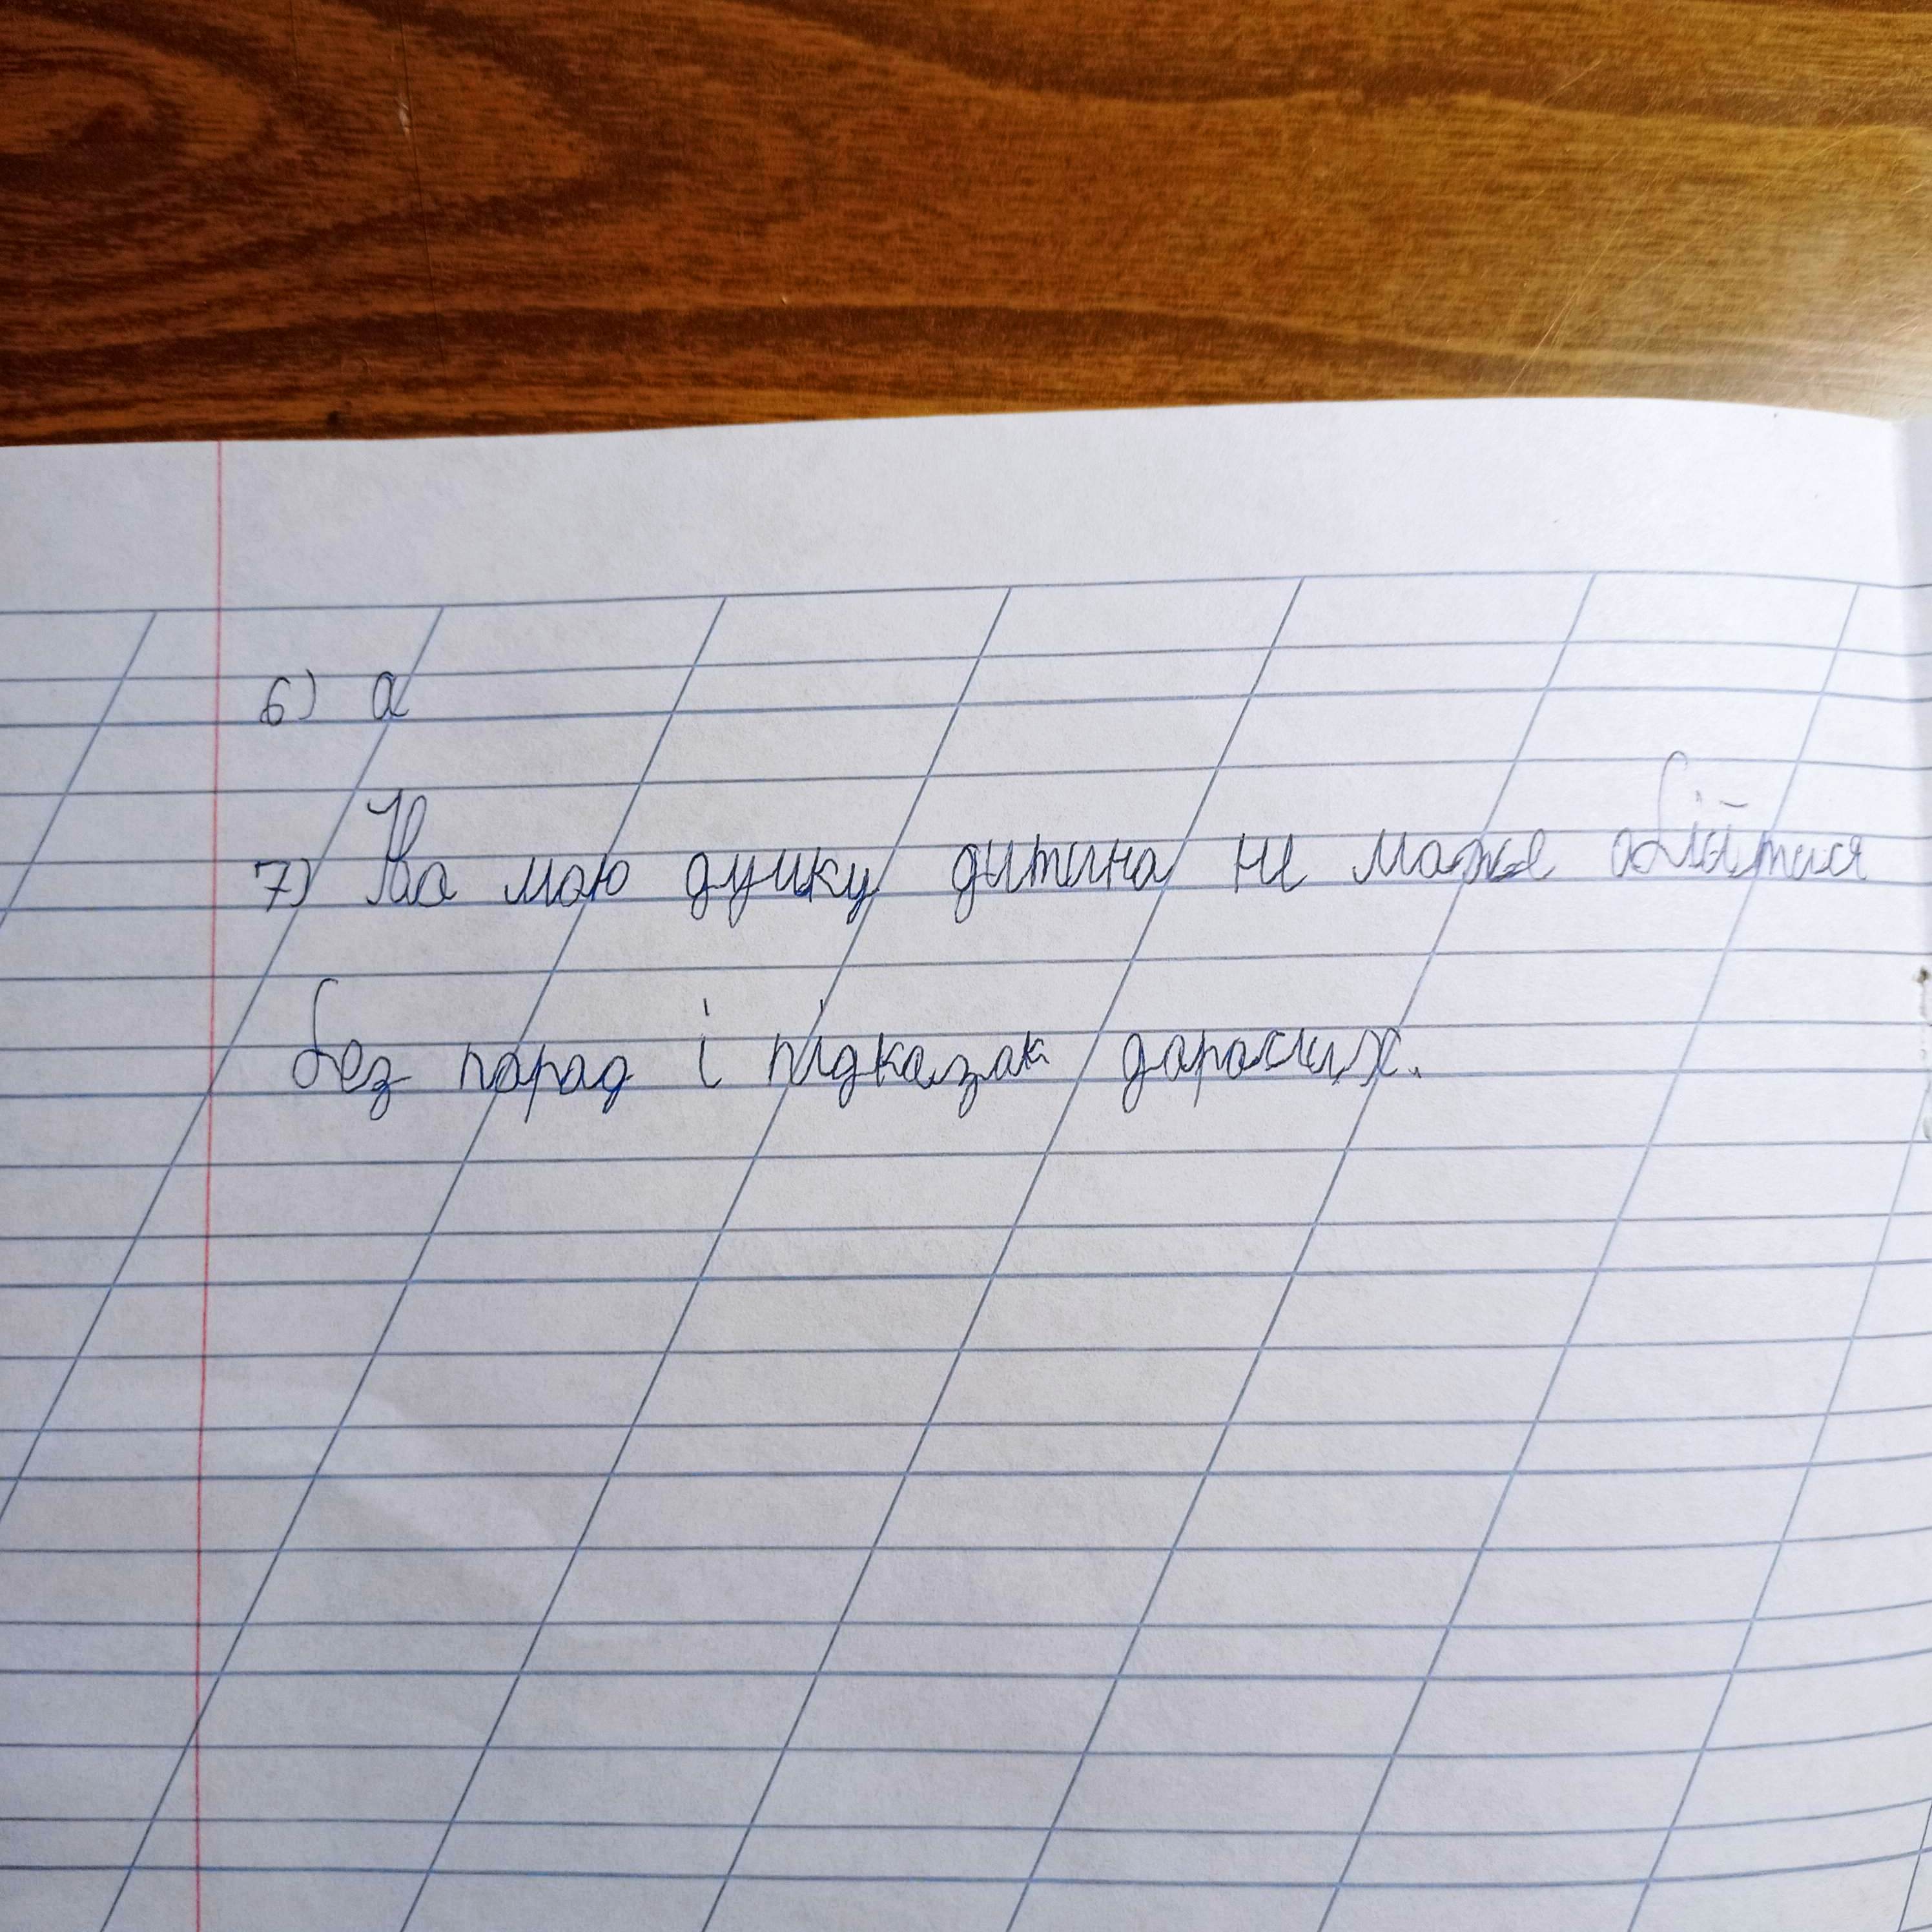 6) а
7) На мою думку дитина не може обійтися
без порад і підказок дорослих.